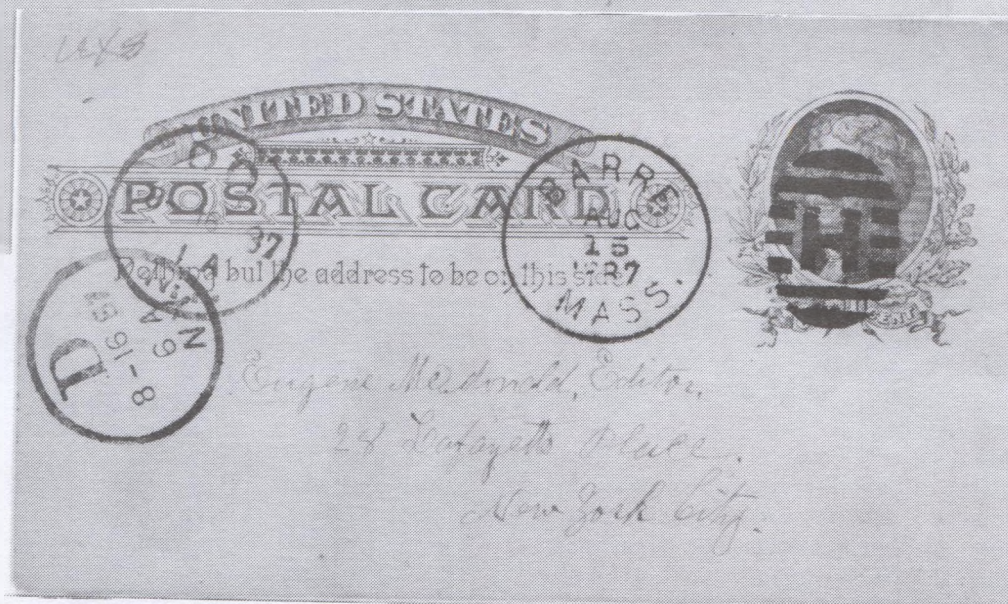 UNITED STATES
POSTAL CARD
Nothing but the address to be on this side
BARRE
AUG
15
1887
MASS.
H
87
N
8-16
87
D
Eugene McDonald, Editor,
28 Lafayette Place.
New York City.